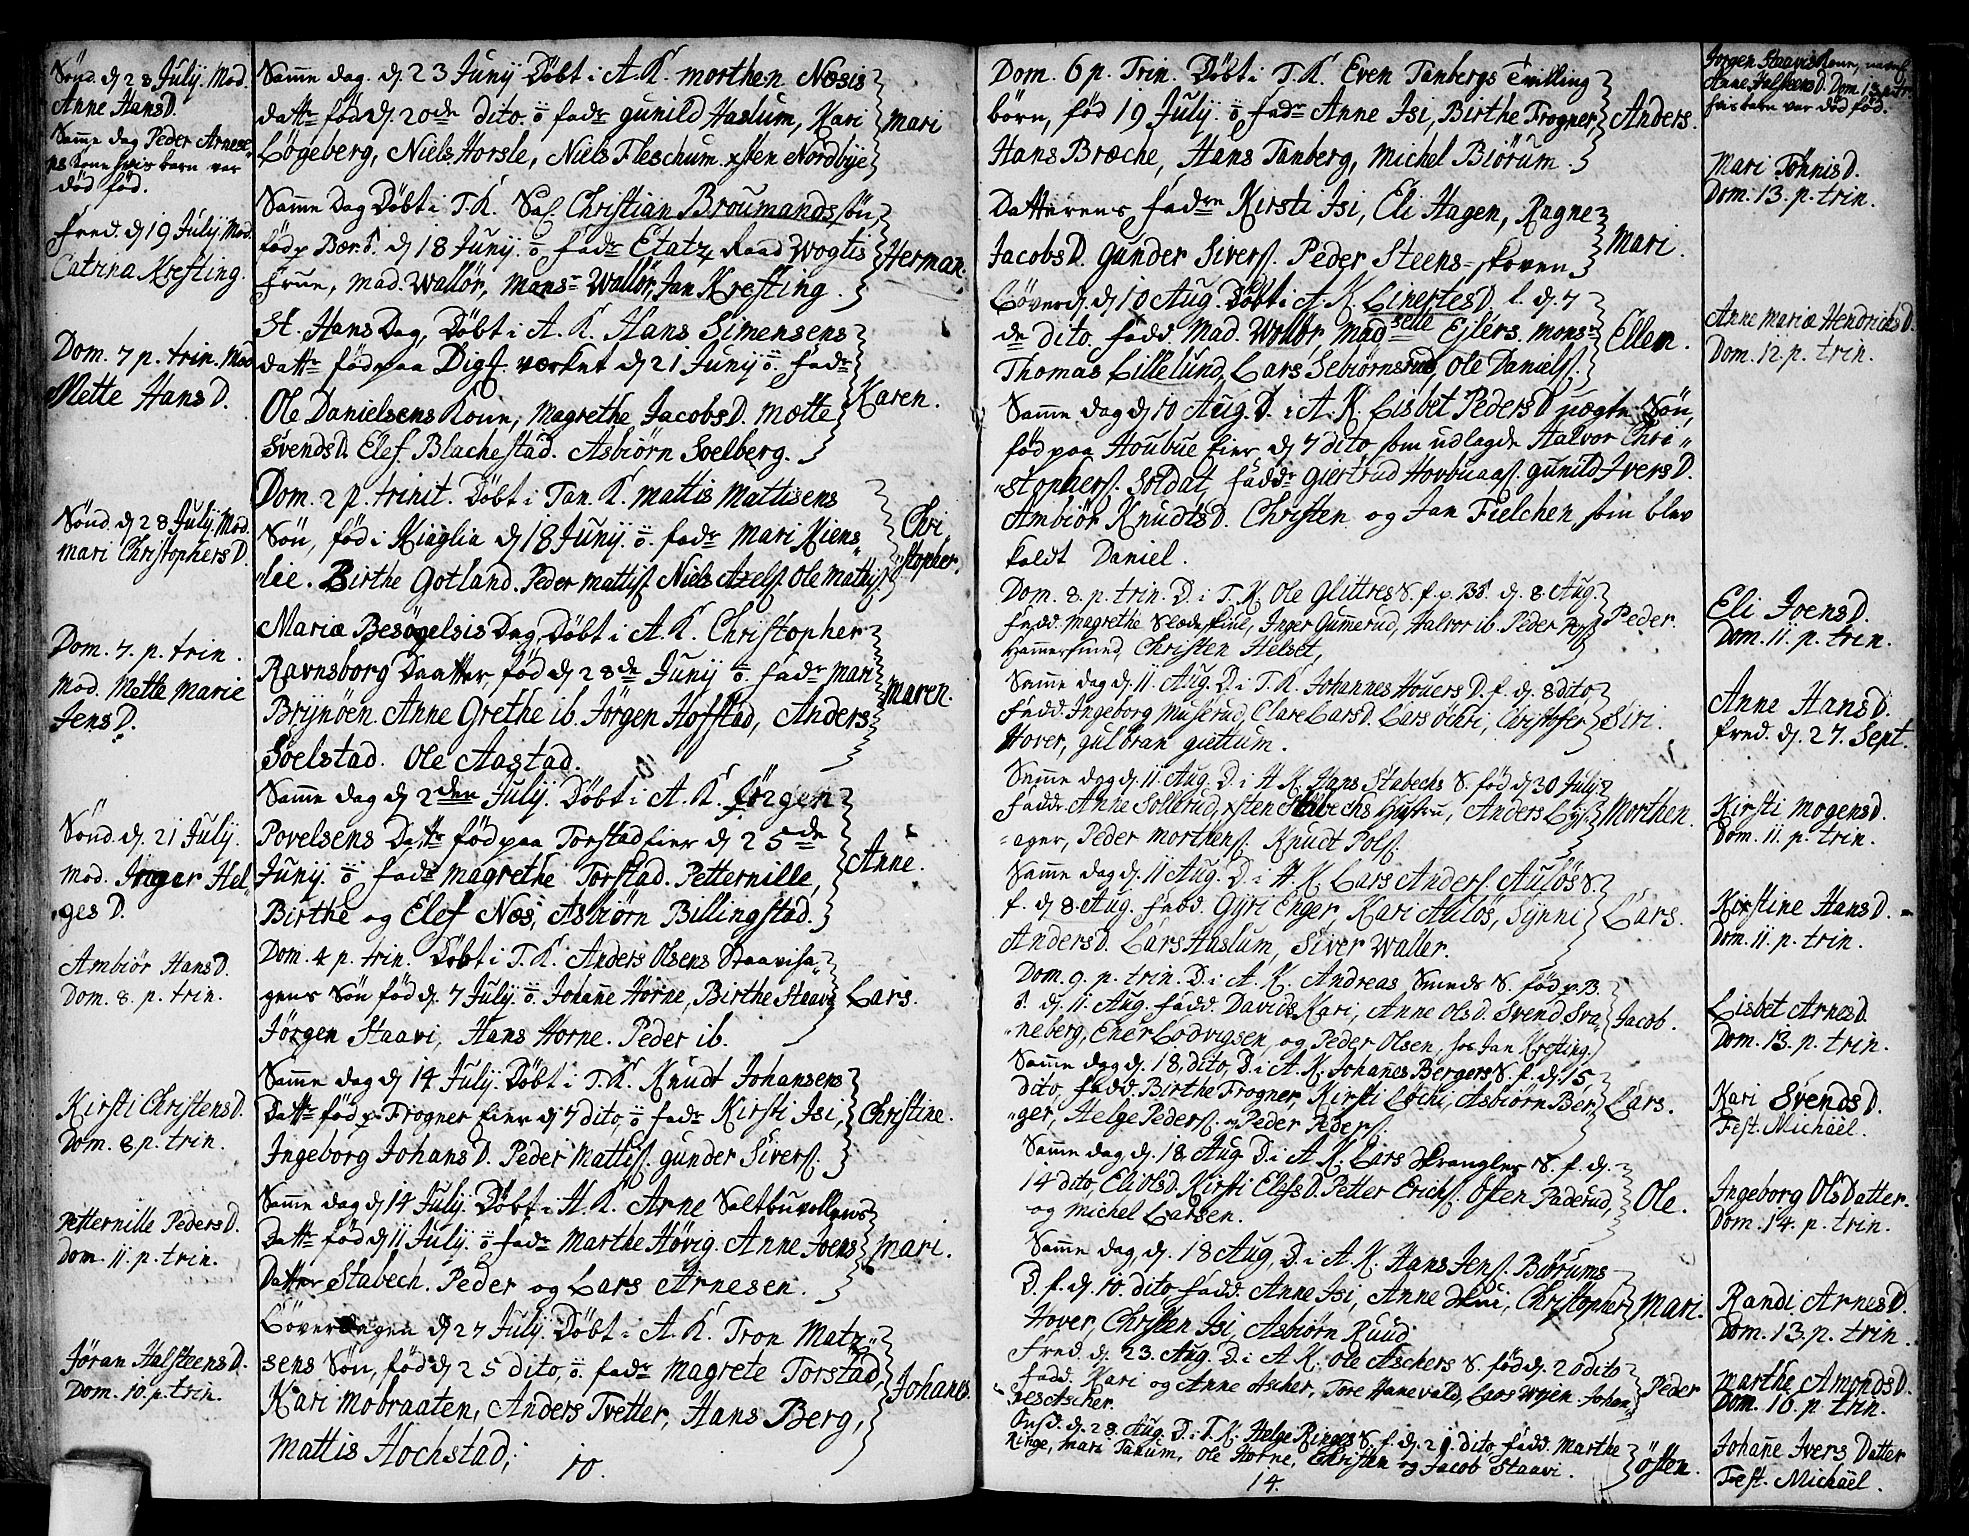 Sønd. dj 28 July. Mod.
Anne HansD.
Samme dag Peder Arnese
ns kone hvis barn var
død fød.
Fred. dj 19 July Mod.
Catrina Krefting.
Dom. 7 p. trin. Mod
Mette HansD.
Sønd. dj 28 July. Mod.
Mari ChristophersD.
Dom. 7. p. trin.
Mod. Mette Marie
JensD.
Sønd. dj. 21 July.
Mod. Inger Hel
ges D.
Ambiør HansD.
Dom. 8. p. trin.
Kirsti ChristensD.
Dom. 8 p. trin.
Petternille PedersD.
Dom. 11. p. trin.
Jøran HalsteensD.
Dom. 10. p. trin.
Samme dag. dj 23 Junij Døbt i A. K. Morthen Næsis
datter fød dj. 20de dito. ö fadr Gunild Haslum, Kari
Løgeberg, Niels Horsle, Niels Fleschum. xsten Nordbye
Mari
Samme Dag Døbt i T. K. Sal. Christian Broumands søn,
fød p Bær. V. dj 18 Junij. ö fadr Etatz Raad Wogtis
Frue, Mad. Wallør, Mons. Wallør, Jan Krefting.
Herman.
St. Hans Dag, Døbt i A. K. Hans Simensens
datter fød paa Digs værket dj 21 Junij ö. fadr
Ole Danielsens Kone, Magrethe JacobsD. Mette
SvendsD. Elef. Blachestad. Asbiørn Soelberg.
Karen.
Dom. 2 p. trinit. Døbt i Tan. K. Mattis Mattisens
Søn, fød i Kiaglia dj 18 Junij. ö. fadr Mari Kiens
lie. Birthe Gotland. Peder Mattis. Niels Axels. Ole Mattis.
Chri
stopher.
Mariæ Besøgelsis Dag, Døbt i A. K. Christopher
Ravnsborg Daatter, fød dj 28de Junij ö. fadr Mari
Brynøen. Anne Grethe ib. Jørgen Hofstad, Anders
Soelstad. Ole Aastad.
Maren.
Samme dag dj 2den July. Døbt i A. K. Jørgen
Povelsens Datter fød paa Torstad eier dj 25de
Junij. ö fadr Magrethe Torstad. Petternille,
Birthe og Elef Næs, Asbiørn Billingstad.
Anne.
Dom. 4 p. trin. Døbt i T. K. Anders Olsens Staaviha
gens Søn fød dj. 7 July. ö. Johanne Horne, Birthe Staavi
Jørgen Staavi, Hans Horne. Peder ib.
Lars.
Samme dag dj 14 July. Døbt i T. K. Knudt Johansens
Datter fød p. Frogner eier dj 7 dito, ö fadr Kirsti Isi,
Ingeborg JohansD. Peder Mattis. Gunder Sivers.
Christine.
Samme dag dj 14 July. Døbt i A. K. Arne Saltbuvollens
Datter fød dj 11 July. ö fadr Marthe Høvig. Anne Joens
Datter Stabech. Peder og Lars Arnesen.
Mari.
Løverdagen dj 27 July. Døbt i A. K. Tron Matz
sens Søn, fød dj 25 dito, ö. fadr Magrete Torstad,
Kari Møbraaten, Anders Tvetter, Hans Berg,
Mattis Hochstad;
Johanes.
10.
Dom. 6 p. Trin. Døbt i T. K. Even Tanbergs Tvilling
børn, fød 19 July. ö fadr Anne Isi, Birthe Frogner,
Hans Bræche, Hans Tanberg, Michel Biørum.
Anders.
Datterens fadre Kirsti Isi, Eli Hagen, Ragne
JacobsD. Gunder Sivers. Peder Steens-skoven
Mari.
Løverd. dj 10 Aug. Døbt i A. K. LinertesD. f. dj. 7
de dito. fadd. Mad. Wallør, Madselle Ejlers. Mons.
Thomas Lillelund, Lars Sebiørnsrud, Ole Daniels.
Ellen.
Samme dag dj 10 Aug. D. i A. K. Lisbet PedersD uægte Søn,
fød paa Houbue eier dj 7 dito, som udlagde Halvor Chri
stophers. Soldat, faddr Giertrud Hovbuaas. Gunild IversD.
Ambiør KnudtsD. Christen og Jan Fielchen, som blev
kaldt Daniel.
Dom. 8. p. trin. D. i T. K. Ole Glittres S. f. p. BV. dj. 8 Aug.
Fadd. Magrethe Slædekiul, Inger Gummerud, Halvor ib. Peder
Hammersmed, Christen Helset,
Peder.
Samme dag dj. 11 Aug. D. i T. K. Johannes Houers D. f. dj. 8 dito
Fadd. Ingeborg Muserud, Clare LarsD. Lars Øchri, Christofer
Hover, Gulbran Guttum.
Siri.
Samme dag dj. 11. Aug. D. i H K. Hans Stabechs S. fød dj 30 July.
Fadd. Anne Sollerud, xsten Stabechs Hustru, Anders Lys
ager, Peder Morthens. Knudt Pols.
Morthen.
Samme dag dj. 11 Aug. D. i H. K. Lars Anders. Auløs S.
f. dj 8. Aug. Fadd. Gyri Enger, Kari Auløs, Synni
AndersD. Lars Haslum, Siver Waller.
Lars.
Dom. 9. p. trin. D. i A. K. Andreas Smeds S. fød p. B.
V. dj. 11. Aug. Fadd. Davids Kari, Anne OlsD. Svend Sva
neberg, Ener Lodvigsen, og Peder Olsen, hos Jan Krefting.
Jacob.
Samme dag dj. 18, dito, D. i A. K. Johanes Bergers S. f. dj. 15,
dito, Fadd. Birthe Frogner, Kirsti Løchi, Asbiørn Ber
ger, Helge Peders. og Peder Peders.
Lars.
Samme dag dj. 18. Aug. D. i A. K. Lars Skrangler S. f. dj.
14 dito, Eli OlsD. Kirsti ElefsD. Petter Erichs. Østen Paderud,
og Michel Larsen.
Ole.
Samme dag, dj. 18 Aug. D. i A. K. Hans Jens. Biørums
D. f. dj. 10. dito fadd. Anne Isi, Anne Skui, Christopher
Hover, Christen Isi, Asbiørn Ruud.
Mari.
Fred. dj. 23. Aug. D. i A. K. Ole Aschers S. fød dj. 20 dito
Fadd. Kari og Anne Ascher, Tore Hanevald, Lars Wøjen. Johan
nes Ascher.
Peder
Onsd. dj. 28. Aug. D. i T. K. Helge Ringes S. f. dj. 21. dito, Fadd. Marthe
Ringe, Mari Tanum, Ole Horne, Christen og Jacob Staavi.
Østen.
14.
Jørgen Staavis Kone, navnl.
Anne HalsteensD. Dom. 13. p. tr.
hvis barn var død fød.
Mari TønnisD.
Dom. 13. p. trin.
Anne Maria HendrichsD.
Dom. 12. p. trin.
Eli JoensD.
Dom. 11. p. trin.
Anne HansD.
Fred. dj. 27. Sept.
Kirsti MogensD.
Dom. 11. p. trin.
Kirstine HansD.
Dom. 11. p. trin.
Lisbet ArnesD.
Dom. 13. p. trin.
Kari SvendsD.
Fest. Michaël.
Ingeborg OlsDatter.
Dom. 14. p. trin.
Randi ArnesD.
Dom. 13. p. trin.
Marthe AmondsD.
Dom. 16. p. trin.
Johanne IversDatter
Fest. Michaël.